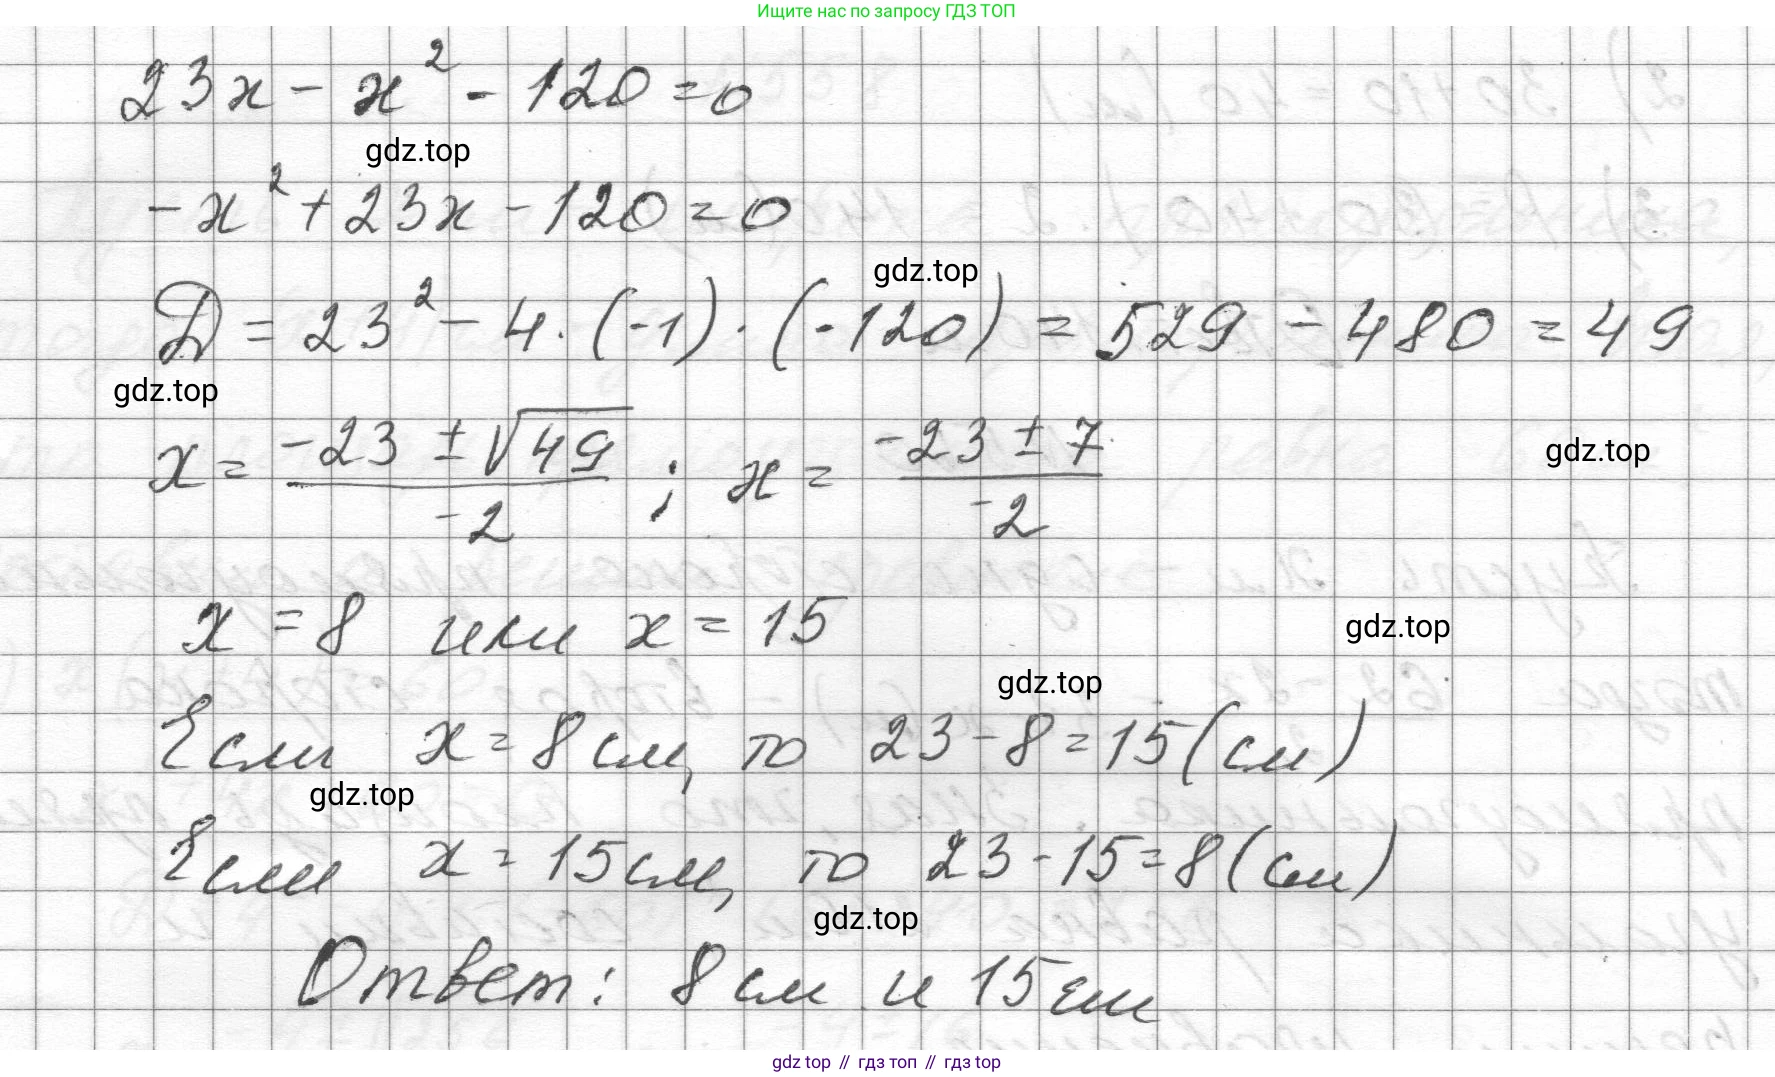 Ищите нас по запросу ГДЗ ТОП
23x - x² - 120 = 0
gdz.top
-x² + 23x - 120 = 0
gdz.top
D = 23² - 4 · (-1) · (-120) = 529 - 480 = 49
gdz.top
x = (-23 ± √49)/-2 ; x = (-23 ± 7)/-2
gdz.top
x = 8 или x = 15
gdz.top
gdz.top
Если x = 8 см, то 23 - 8 = 15 (см)
gdz.top
Если x = 15 см, то 23 - 15 = 8 (см)
gdz.top
Ответ: 8 см и 15 см
gdz top // гдз топ // гдз top